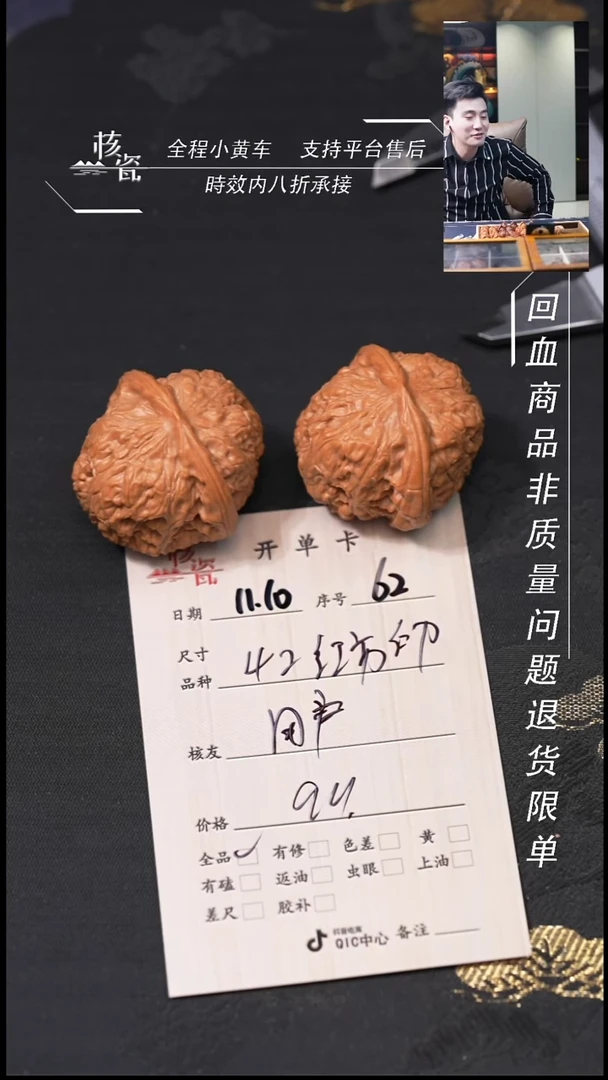 核瓷
全程小黄车 支持平台售后
時效内八折承接
回血商品非质量问题退货限单
核瓷
开单卡
日期 11.10 序号 62
尺寸 42
品种
核友 用户
价格
全品 有修 色差 黄
有磕 返油 虫眼 上油
差尺 胶补
抖音电商
QIC中心 备注